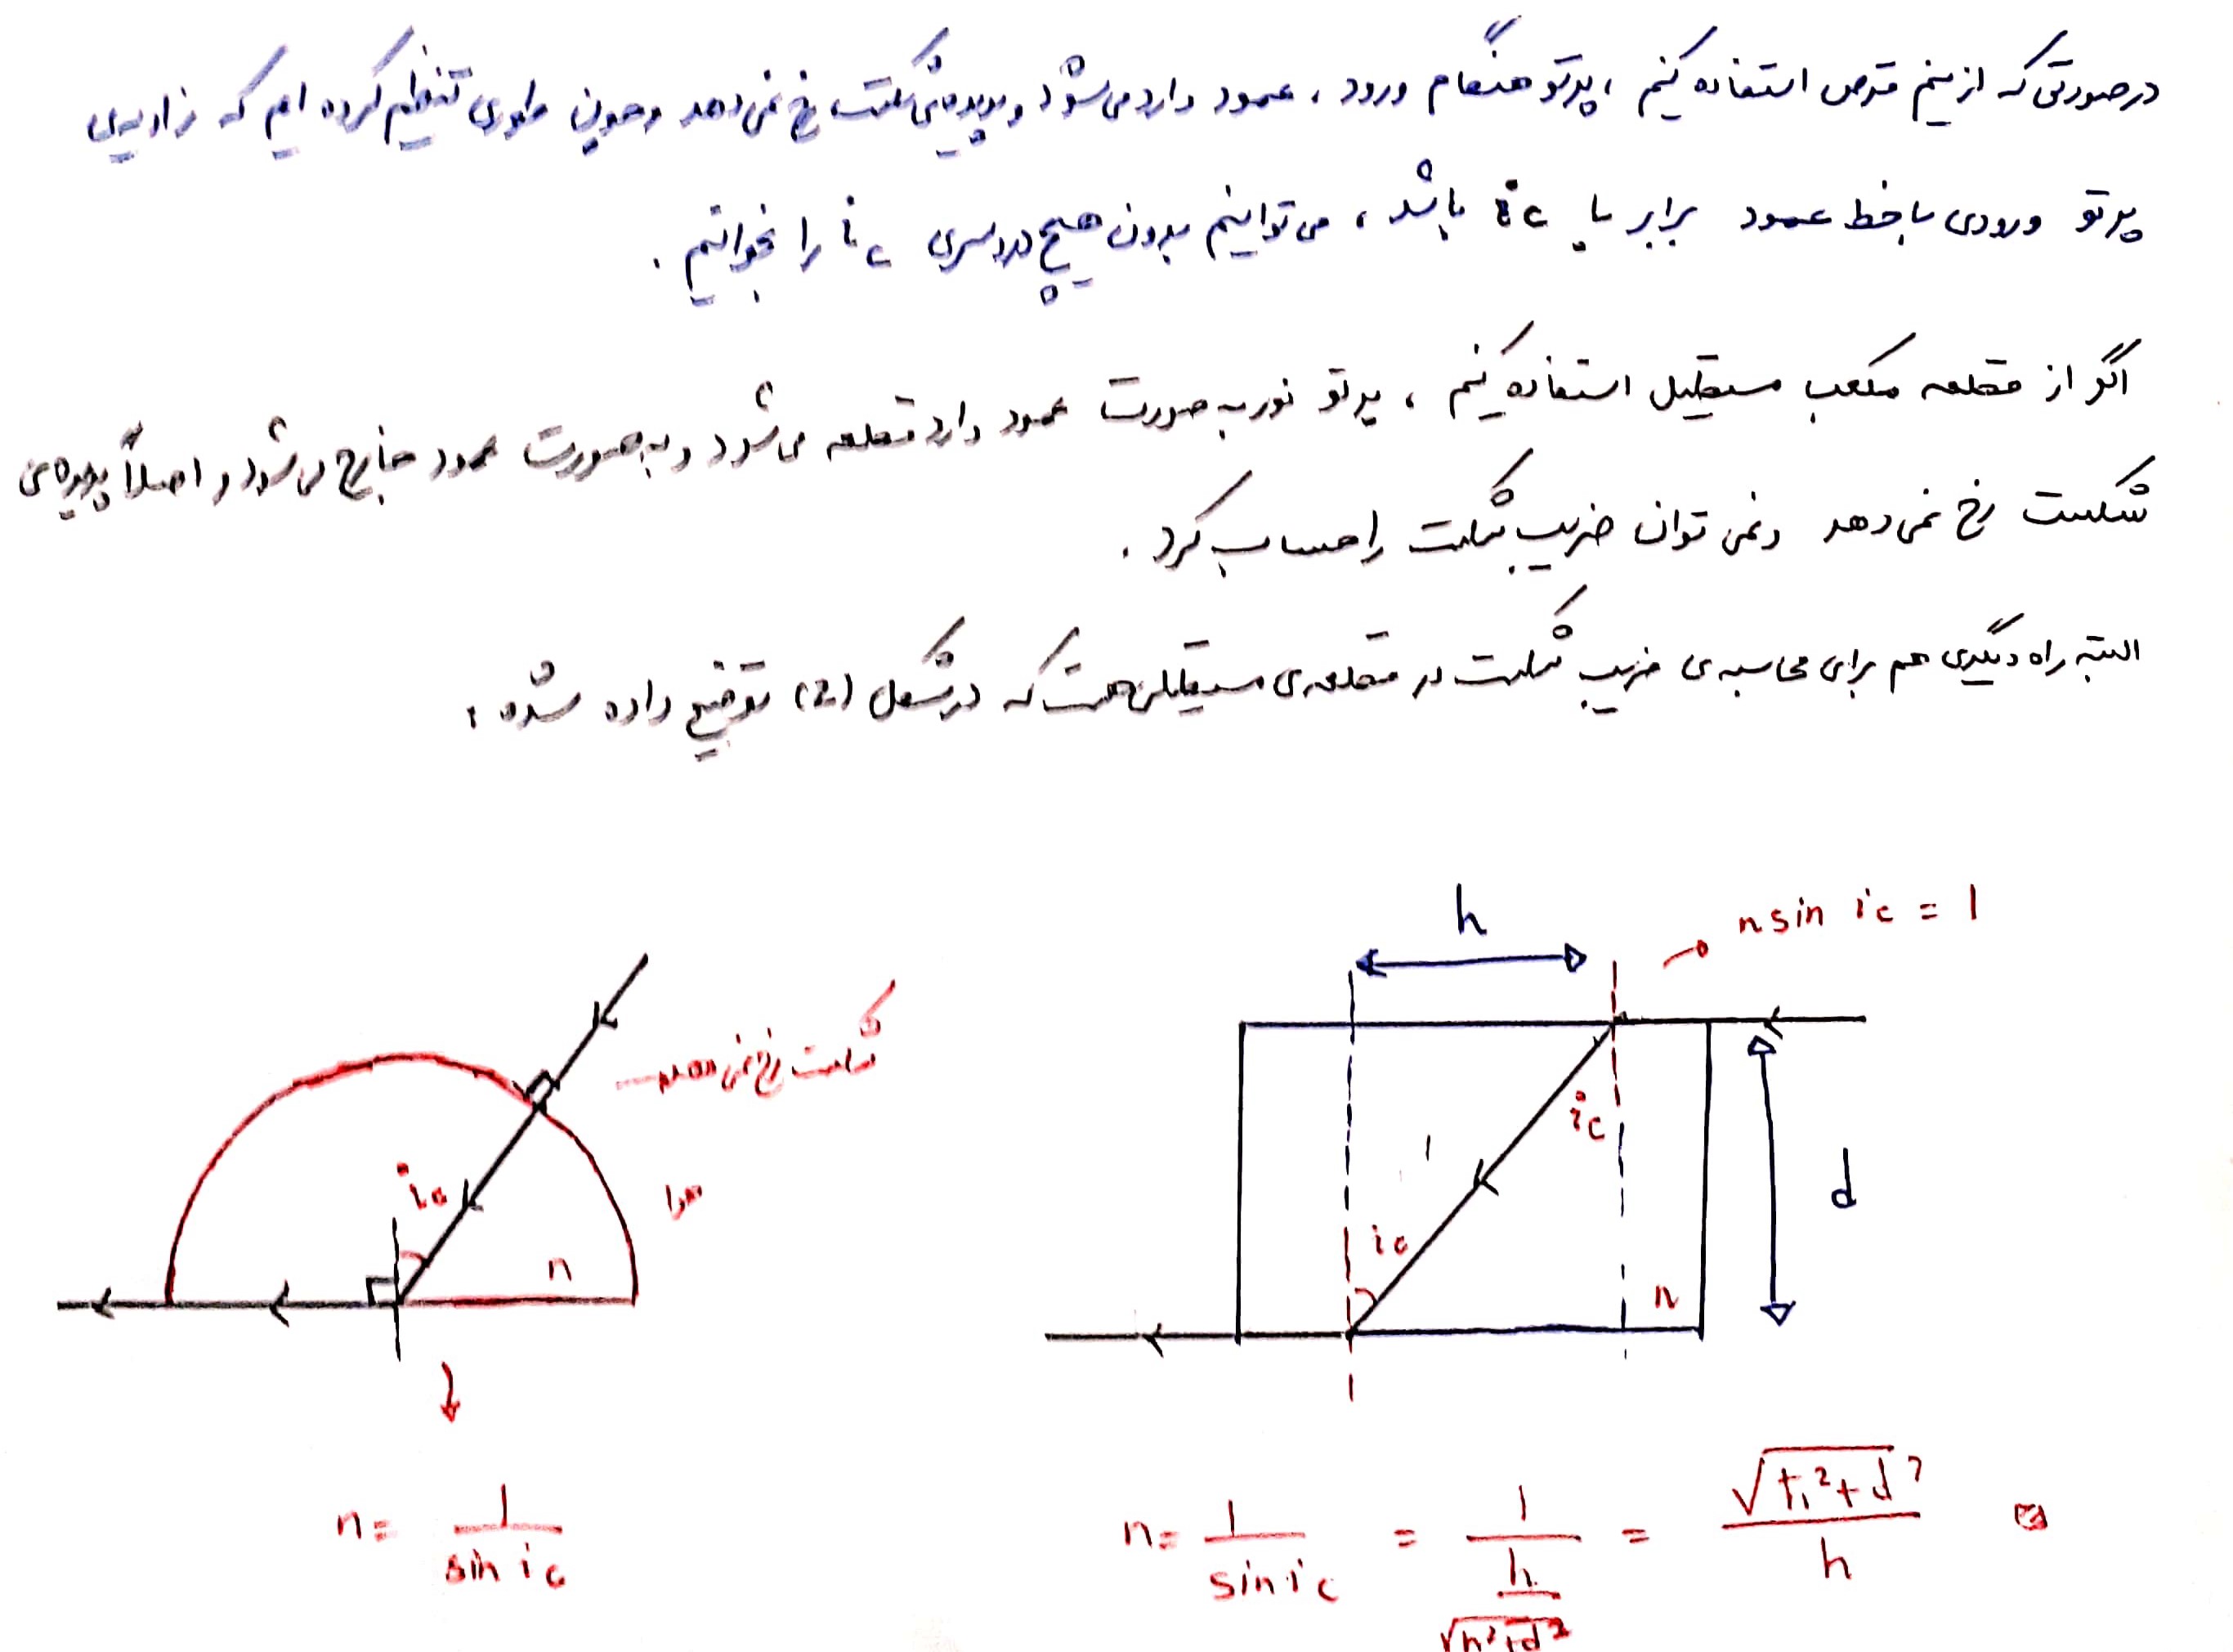 درصورتی که از نیم قرص استفاده کنیم ، پرتو هنگام ورود ، عمود وارد می شود و پدیده ی شکست رخ نمی دهد و چون طوری تنظیم کرده ایم که زاویه ی
پرتو ورودی با خط عمود برابر با ic باشد ، می توانیم بدون هیچ دردسری ic را بخوانیم .
اگر از قطعه مکعب مستطیل استفاده کنیم ، پرتو نور به صورت عمود وارد قطعه می شود و به صورت عمود خارج می شود و اصلاً پدیده ی
شکست رخ نمی دهد و نمی توان ضریب شکست را حساب کرد .
البته راه دیگری هم برای محاسبه ی ضریب شکست در قطعه ی مستطیلی هست که در شکل (2) توضیح داده شده :
h
n sin ic = 1
شکست رخ نمی دهد
ic
هوا
n
ic
ic
n
d
n = 1 / sin ic
n = 1 / sin ic = 1 / (h / √(h²+d²)) = √(h²+d²) / h